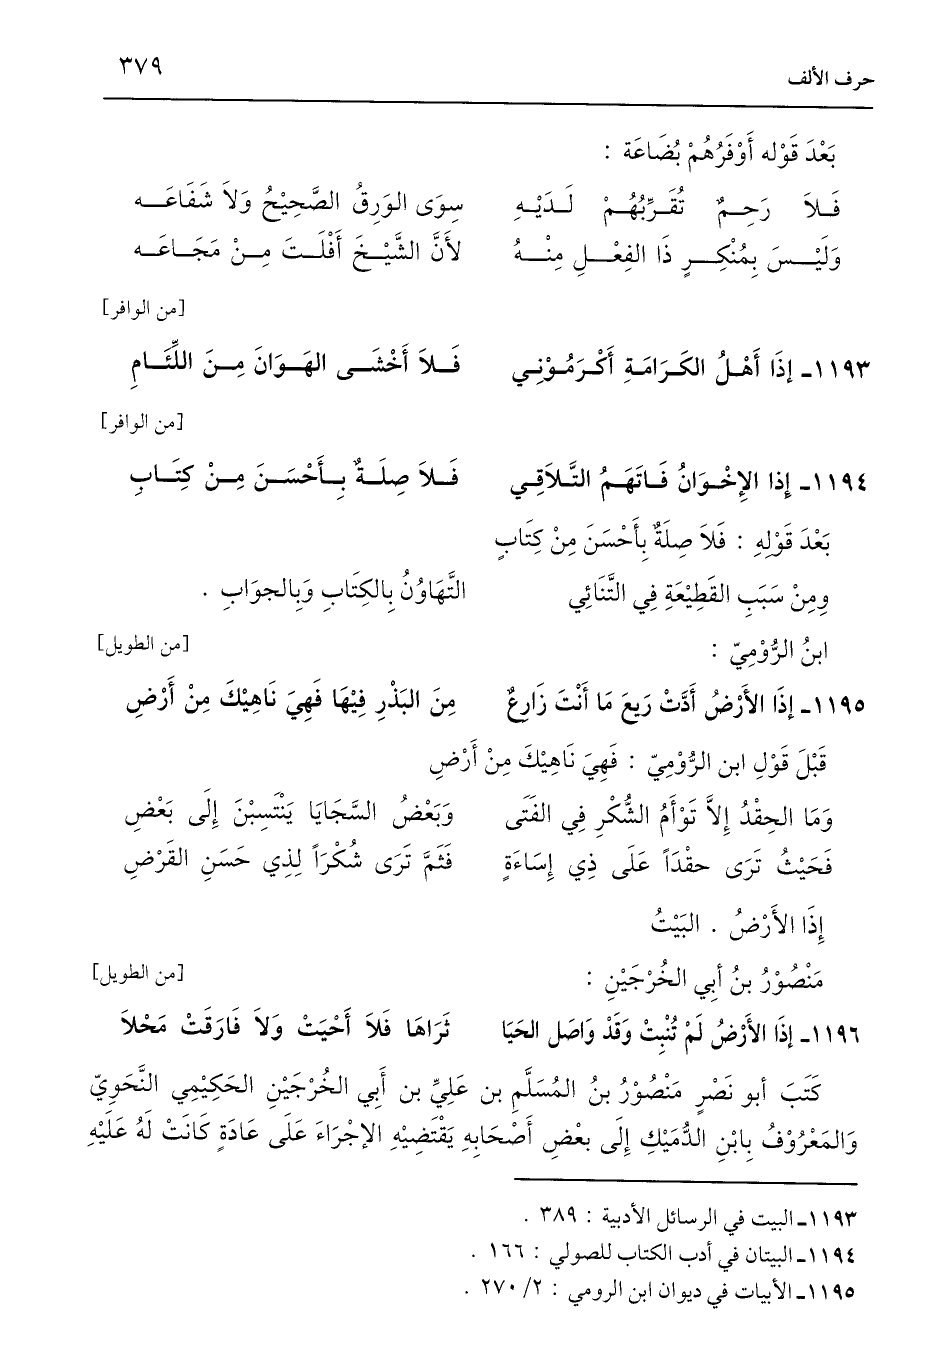 حرف الألف ٣٧٩
بَعْدَ قَوْله أَوْفَرُهُمْ بُضَاعَة :
فَلاَ رَحِمٌ تُقَرِّبُهُمْ لَدَيْهِ سِوَى الوَرِقُ الصَّحِيْحُ وَلاَ شَفَاعَه
وَلَيْسَ بِمُنْكِرٍ ذَا الفِعْلِ مِنْهُ لأَنَّ الشَّيْخَ أَفْلَتَ مِنْ مَجَاعَه
[من الوافر]
١١٩٣ـ إِذَا أَهْلُ الكَرَامَةِ أَكْرَمُوْنِي فَلاَ أَخْشَى الهَوَانَ مِنَ اللِّئَامِ
[من الوافر]
١١٩٤ـ إِذا الإِخْوَانُ فَاتَهَمُ التَّلاَقِي فَلاَ صِلَةٌ بِأَحْسَنَ مِنْ كِتَابِ
بَعْدَ قَوْلِهِ : فَلاَ صِلَةٌ بِأَحْسَنَ مِنْ كِتَابٍ
وِمِنْ سَبَبِ القَطِيْعَةِ فِي التَّنَائِي التَّهَاوُنُ بِالكِتَابِ وَبِالجوَابِ .
ابنُ الرُّوْمِيّ : [من الطويل]
١١٩٥ـ إِذَا الأَرْضُ أَدَّتْ رَيعَ مَا أَنْتَ زَارِعٌ مِنَ البَذْرِ فِيْهَا فَهِيَ نَاهِيْكَ مِنْ أَرْضِ
قَبْلَ قَوْلِ ابن الرُّوْمِيّ : فَهِيَ نَاهِيْكَ مِنْ أَرْضِ
وَمَا الحِقْدُ إِلاَّ تَوْأَمُ الشُّكْرِ فِي الفَتَى وَبَعْضُ السَّجَايَا يَنْتَسِبْنَ إِلَى بَعْضِ
فَحَيْثُ تَرَى حقْدَاً عَلَى ذِي إِسَاءَةٍ فَثَمَّ تَرَى شُكْرَاً لِذِي حَسَنِ القَرْضِ
إِذَا الأَرْضُ . البَيْتُ
مَنْصُوْرُ بنُ أبي الخُرْجَيْنِ : [من الطويل]
١١٩٦ـ إِذَا الأَرْضُ لَمْ تُنْبِتْ وَقَدْ وَاصَل الحَيَا ثَرَاهَا فَلاَ أَحْيَتْ وَلاَ فَارَقَتْ مَحْلاَ
كَتَبَ أبو نَصْرٍ مَنْصُوْرُ بنُ المُسَلَّمِ بن عَلِيِّ بن أَبِي الخُرْجَيْنِ الحَكِيْمِي النَّحَوِيّ
وَالمَعْرُوْفُ بِابْنِ الدُّمَيْكِ إِلَى بعْضِ أَصْحَابِهِ يَقْتَضِيْهِ الإجْرَاءَ عَلَى عَادَةٍ كَانَتْ لَهُ عَلَيْهِ
١١٩٣ـ البيت في الرسائل الأدبية : ٣٨٩ .
١١٩٤ـ البيتان في أدب الكتاب للصولي : ١٦٦ .
١١٩٥ـ الأبيات في ديوان ابن الرومي : ٢/ ٢٧٠ .